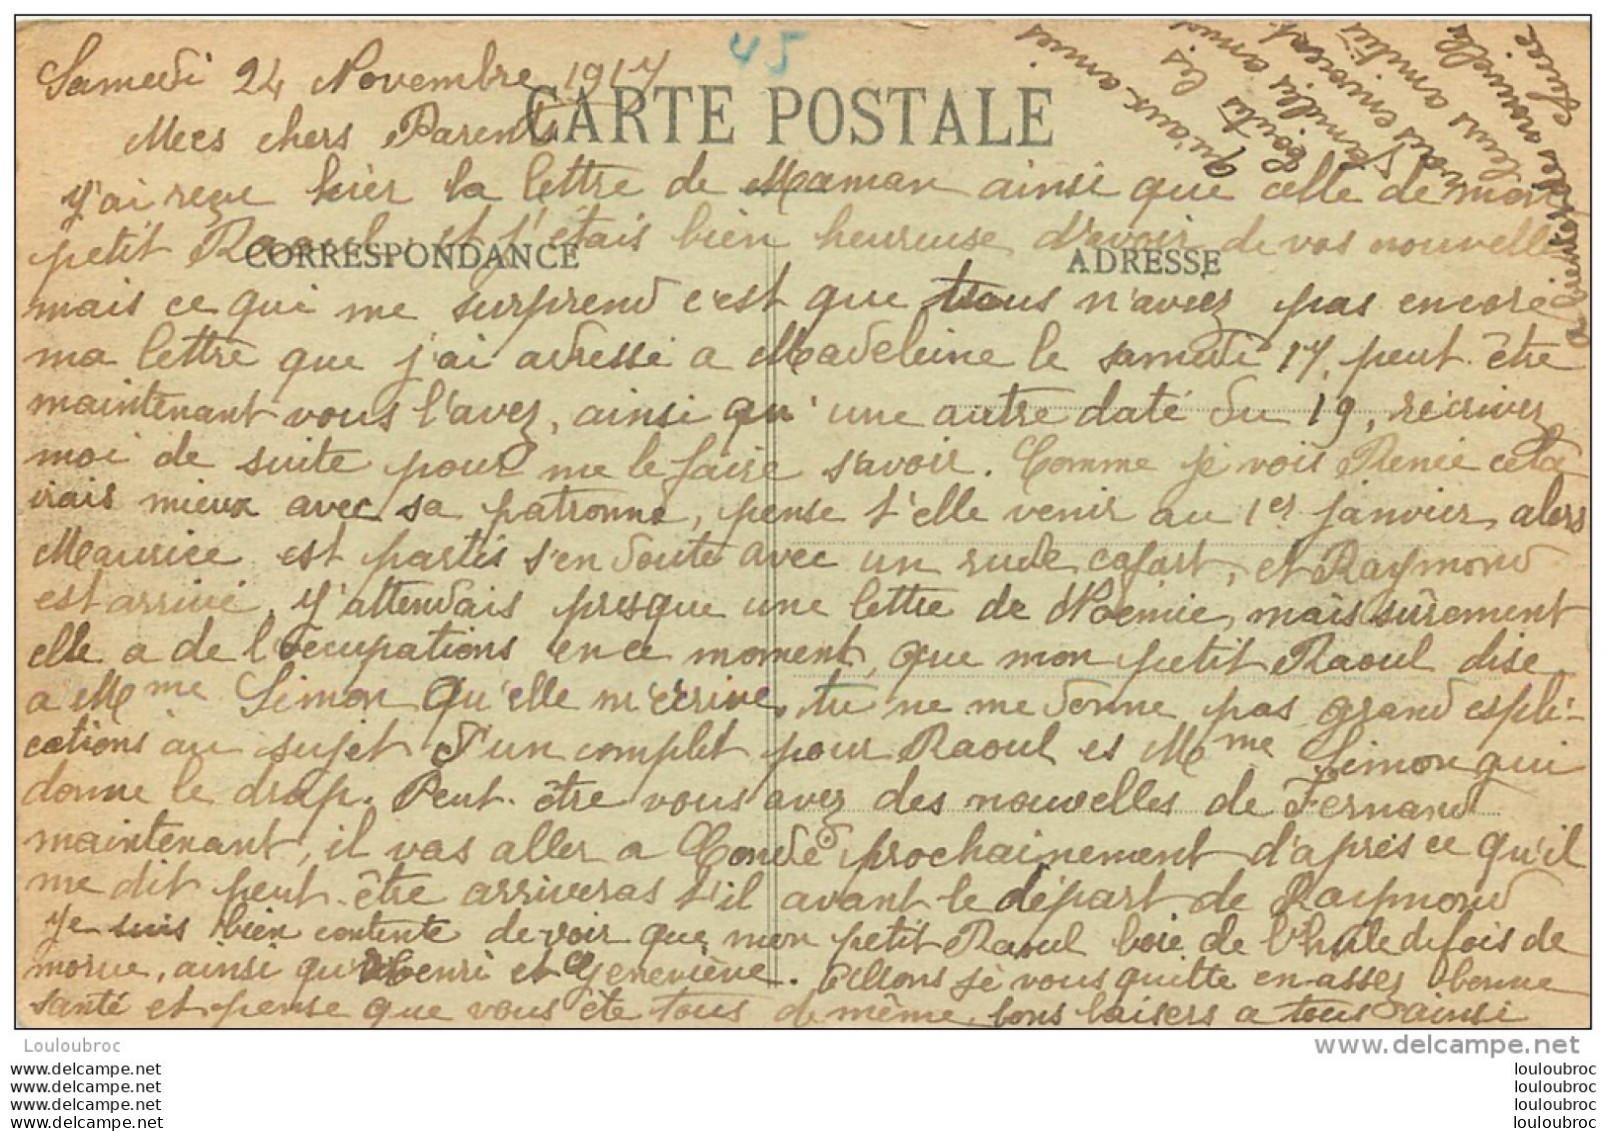 45
Samedi 24 Novembre 1917
CARTE POSTALE
Mes chers Parents
J'ai reçue hier la lettre de Maman ainsi que celle de mon
petit Raoul, et j'étais bien heureuse d'avoir de vos nouvelles
CORRESPONDANCE
ADRESSE
mais ce qui me surprend c'est que vous n'avez pas encore
ma lettre que j'ai adressé a Madeleine le samedi 17, peut-être
maintenant vous l'avez, ainsi qu'une autre daté du 19, récrivez
moi de suite pour me le faire savoir. Comme je vois Renée cela
irais mieux avec sa patronne, pense t'elle venir au 1er janvier, alors
Maurice est partis s'en doute avec un rude cafart, et Raymond
est arrivé, J'attendais presque une lettre de Noémie, mais sûrement
elle a de l'occupations en ce moment, que mon petit Raoul dise
a Mme Simon qu'elle m'écrive, tu ne me donne pas grand espli-
cations au sujet d'un complet pour Raoul es Mme Simon qui
donne le drap. Peut-être vous avez des nouvelles de Fernand
maintenant, il vas aller a Condé prochainement d'après ce qu'il
me dit peut-être arriveras t'il avant le départ de Raymond
Je suis bien contente de voir que mon petit Raoul boie de l'huile de fois de
morue, ainsi qu'Henri et Geneviève. Allons je vous quitte en assez bonne
santé et pense que vous ête tous de même, bons baisers a tous ainsi
qu'aux amis
toute les
familles amis
vous envoient
leurs amitiés
a bientôt des nouvelles
Lucie
Louloubroc
delcampe.net
www.delcampe.net
www.delcampe.net
www.delcampe.net
www.delcampe.net
louloubroc
louloubroc
louloubroc
louloubroc